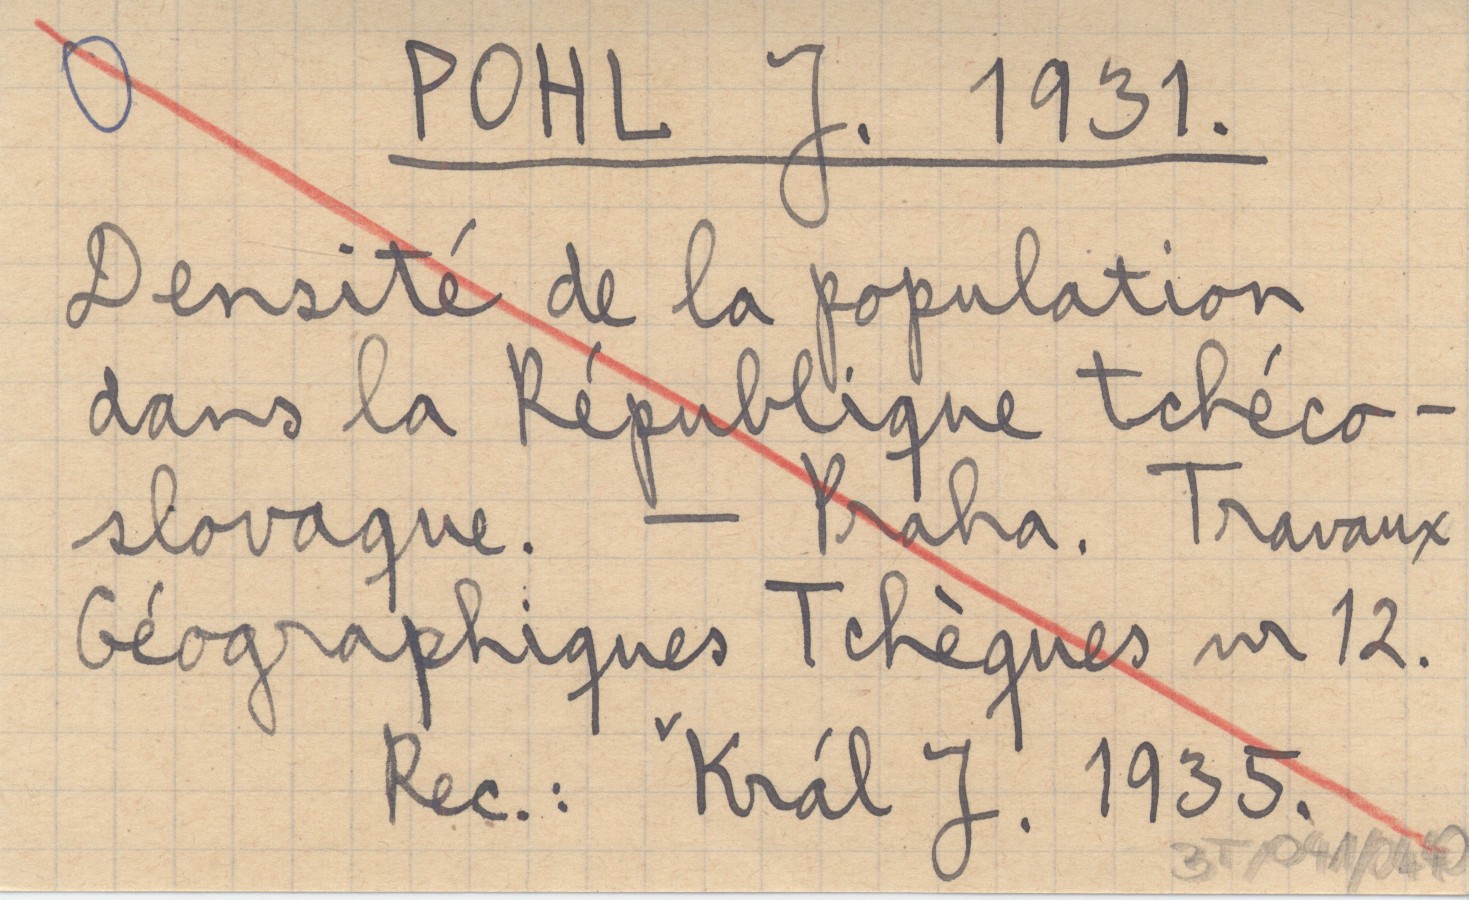 POHL J. 1931.
Densité de la population
dans la République tchéco-
slovaque. — Praha. Travaux
Géographiques Tchèques nr 12.
Rec.: ˇKrál J. 1935.